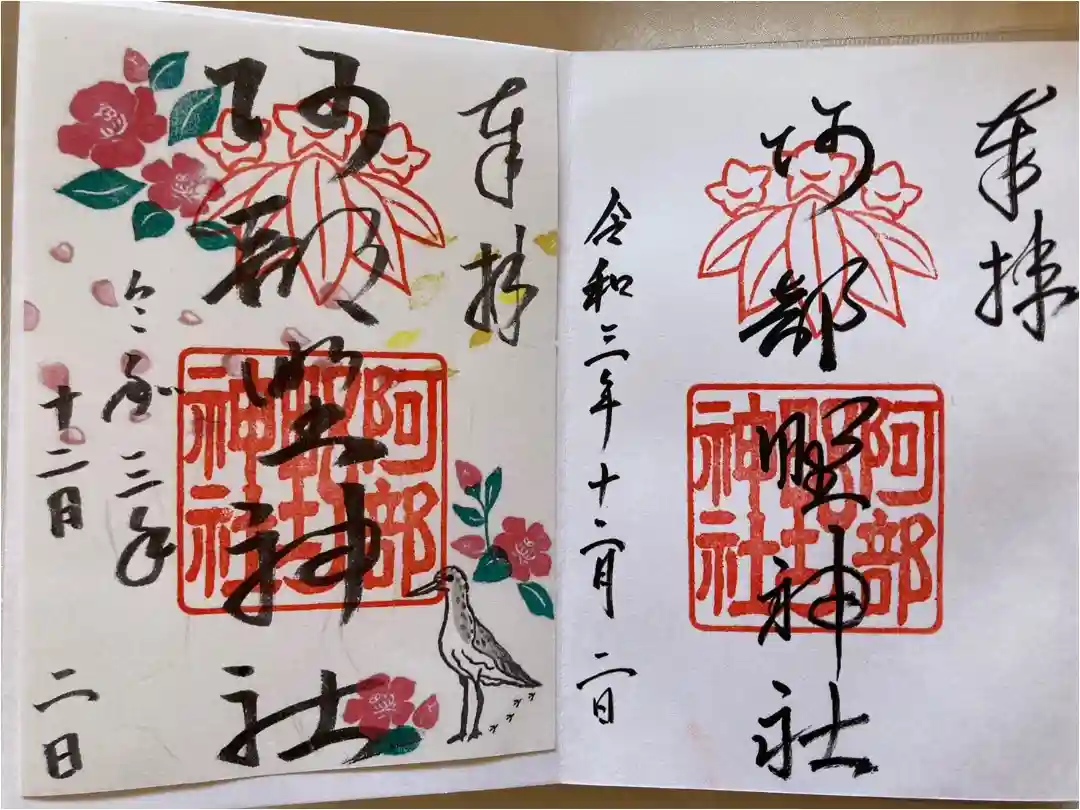 奉拝
阿部野神社
阿部野神社
令和三年十二月二日
奉拝
阿部野神社
阿部野神社
令和三年
十二月二日